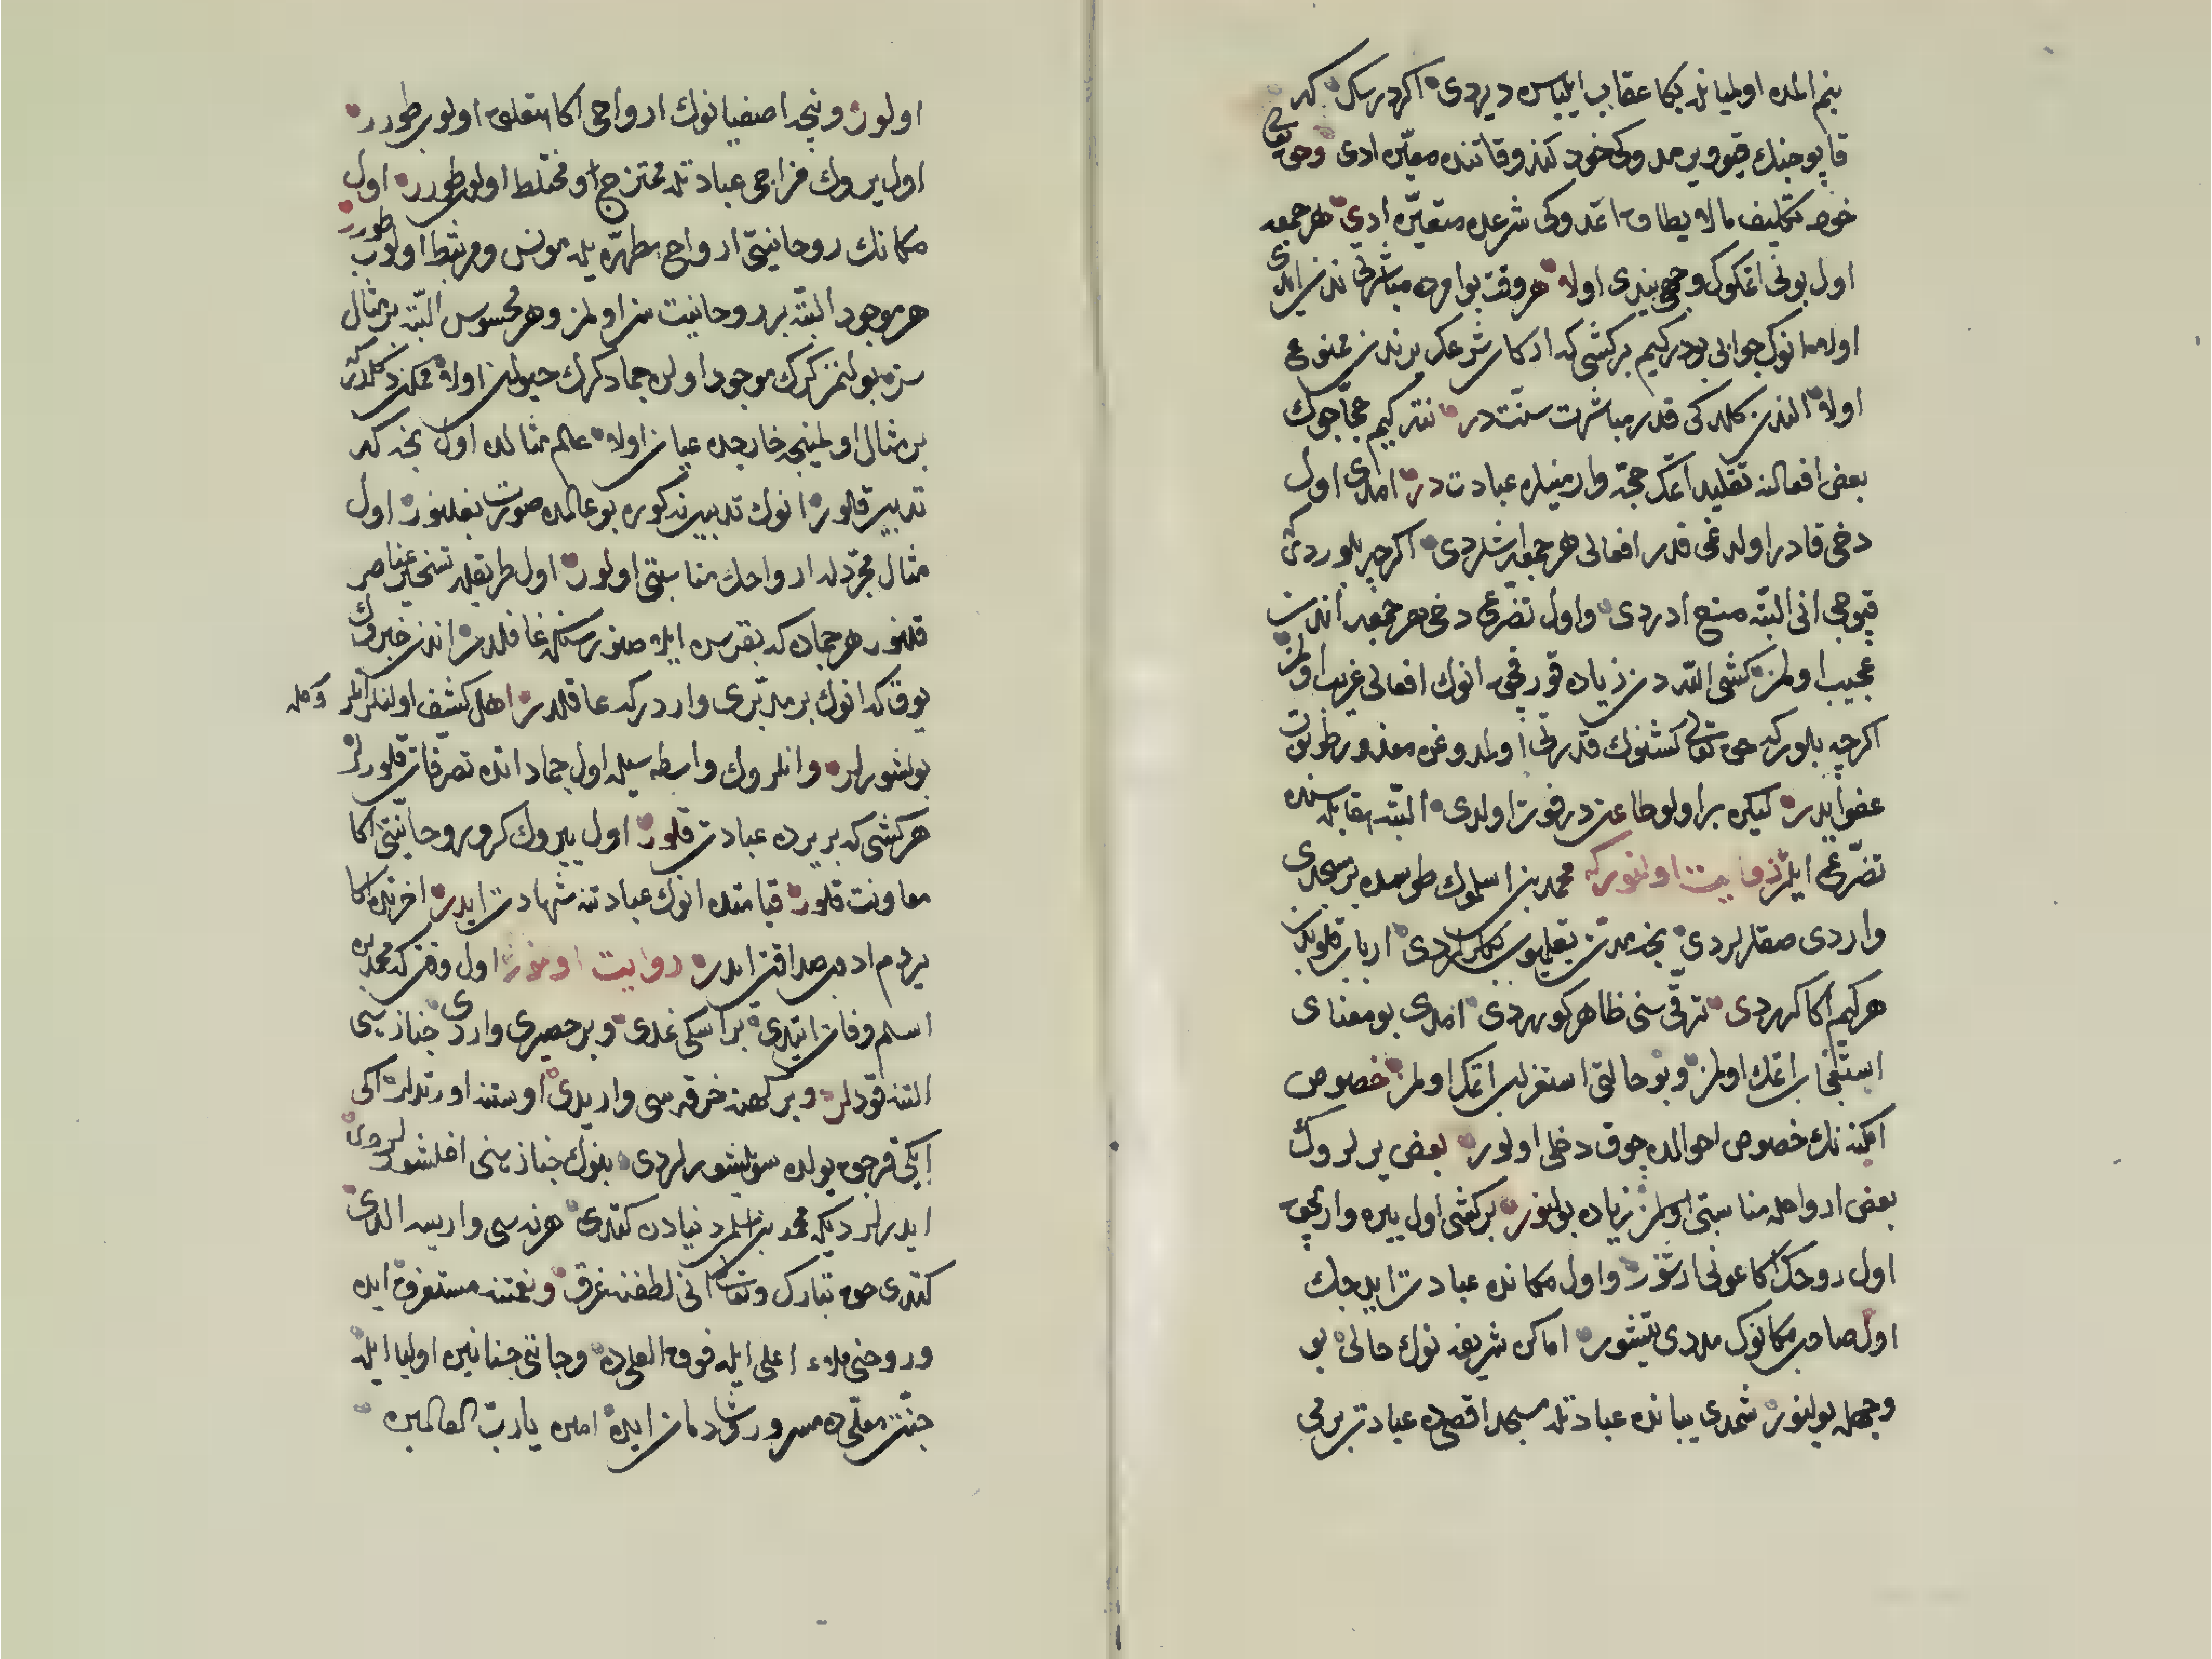 بنم المده اولمیانله بکا عقاب ایلیاس دیردی اکر دیرسك که
قاپوجینك قپو ویرمدوکی خود کندو قاتنده معیّن ادی وحق تعالی
خود تکلیف مالا یطاق اتمدوکی شرعده متعیّن ادی هر جمعه
اول بونی اتمکوك وجهی نیدی اولا هر وقت بو امره مباشرتی ندن ایدی
اولمعانوك جوابی بودر کیم بر کشی که ارکان شرعك برندن ممنوع
اولا الندن کلدکی قدر مباشرت سنّت در نتکیم حجّاجوك
بعض افعالنه تقلید اتمك حجّه وارمینلره عبادت در امدی اول
دخی قادر اولدغی قدر افعالی هر جمعه ایشلردی اکرچه بلوردی
قپوجی انی البتّه منع ادردی واول تضرّعی دخی هر جمعه اندن
عجیب اولمز کشی اللّه دن زیاده قورقیجق انوك افعالی غریب اولمز
اکرچه بلور که حق تعالی کشینوك قدرتی اولمدوغن معذور طوتوب
عفو ایدر لیکن بر اولو طاعت در فوت اولدی البتّه مقابله سنده
تضرّع ایلر روایت اولنور که محمد بن اسلموك طوسده بر مسجدی
واردی صقلرلردی بخدمتن تعلیلیوب کلرلردی ارباب قلوبدن
هر کیم اکا کرردی ترقّی سنی ظاهر کوردی امدی بو معنای
استقباح اتمك اولمز وبو حالتی استغراب اتمك اولمز خصوص
امکنه نك خصوص احوالده چوق دخلی اولور بعض یرلروك
بعض ارواحله مناسبتی اولمز زیاده بولنور بر کشی اول یره واریجق
اول روحك اکا عونی ارشور واول مکانده عبادت ایدیجك
اول صاحب مکانوك مددی یتیشور اماکن شریفه نوك حالی بو
وجهله بولنور شمدی یبانده عبادتله مسجد اقصیده عبادت بر می
اولور ونیجه اصفیانوك ارواحی اکا متعلق اولوب طورر
اول یروك مزاجی عبادتله ممتزج و مختلط اولوب طورر اول
مکانك روحانیتی ارواح مطهّره یله مونس ومرتبط اولوب طورر
هر موجود البتّه بر روحانیت سز اولمز وهر محسوس البتّه بر مثال
سز بولنمز کرك موجود اولن جماد کرك حیوان اولا ممکن دکلدر که
بر مثال اولمینجه خارجده عیان اولا عالم مثالده اول نجه که
تدبیر قلنور انوك تدبیرنه کوره بو عالمده صورت بغلنور اول
مثال مجرّدله ارواحك مناسبتی اولور اول طریقله تسخیر عناصر
قلنور هر جماده که بقرسه ایله صنورسنکه غافلدر اندن خبروك
یوق که انوك بر مدبّری واردر که عاقلدر اهل کشف اولنلر انلر وکله
بولشورلر وانلروك واسطه سیله اول جماد انده تصرفات قلورلر
هر کشی که بر یرده عبادت قلور اول یروك کرو روحانیتی اکا
معاونت قلور قیامتده انوك عبادتنه شهادت ایدر اخرتده اکا
یردم ادوب صداقت ایدر روایت اولنور اول وقتی که محمد بن
اسلم وفات ایتدی بر اسکی غدی وبر حصیری واردی جنازه سی
التنه قودلر وبر کهنه خرقه سی واریدی اوستنه اورتدلر اکی
ایکی قرجق یولده سویلشورلردی بونوك جنازه سنی اغلشورلردی
ایدرلر دیکه محمد بن اسلم دنیادن کتدی هر نه سی واریسه الدی
کتدی حق تبارك وتعالی انی لطفنه غرق ونعمتنه مستغرق ایده
وروحنی ملاء اعلی ایله فوق العلی ده وجانی جنانین اولیا ایله
جنّت معلّی ده مسرور وشادمان ایده امین یا ربّ العالمین